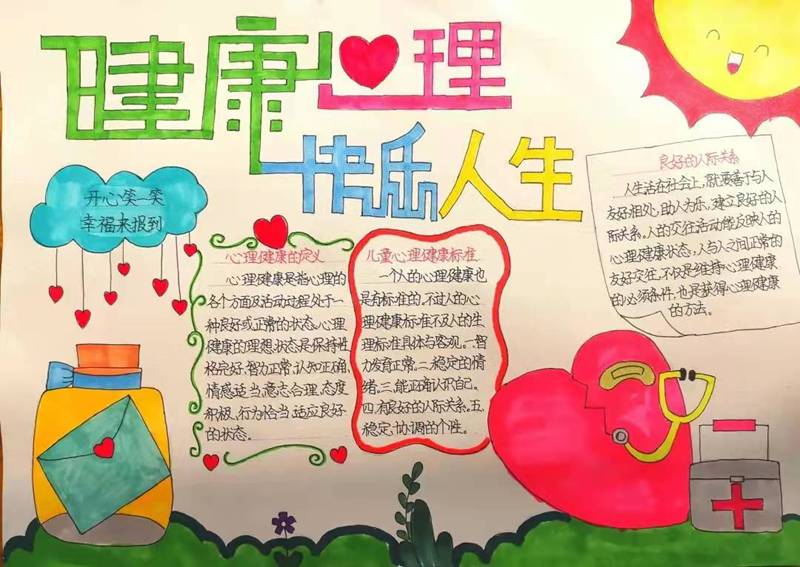 健康心理
快乐人生
开心笑一笑
幸福来报到
心理健康的定义
心理健康是指心理的
各个方面及活动过程处于一
种良好或正常的状态。心理
健康的理想状态是保持性
格完好、智力正常、认知正确、
情感适当、意志合理、态度
积极、行为恰当、适应良好
的状态。
儿童心理健康标准
一个人的心理健康也
是有标准的,不过人的心
理健康标准不及人的生
理标准具体与客观。一.智
力发育正常。二.稳定的情
绪。三.能正确认识自己。
四.有良好的人际关系。五.
稳定、协调的个性。
良好的人际关系
人生活在社会上,就要善于与人
友好相处,助人为乐,建立良好的人
际关系。人的交往活动能反映人的
心理健康状态,人与人之间正常的
友好交往,不仅是维持心理健康
的必须条件,也是获得心理健康
的方法。